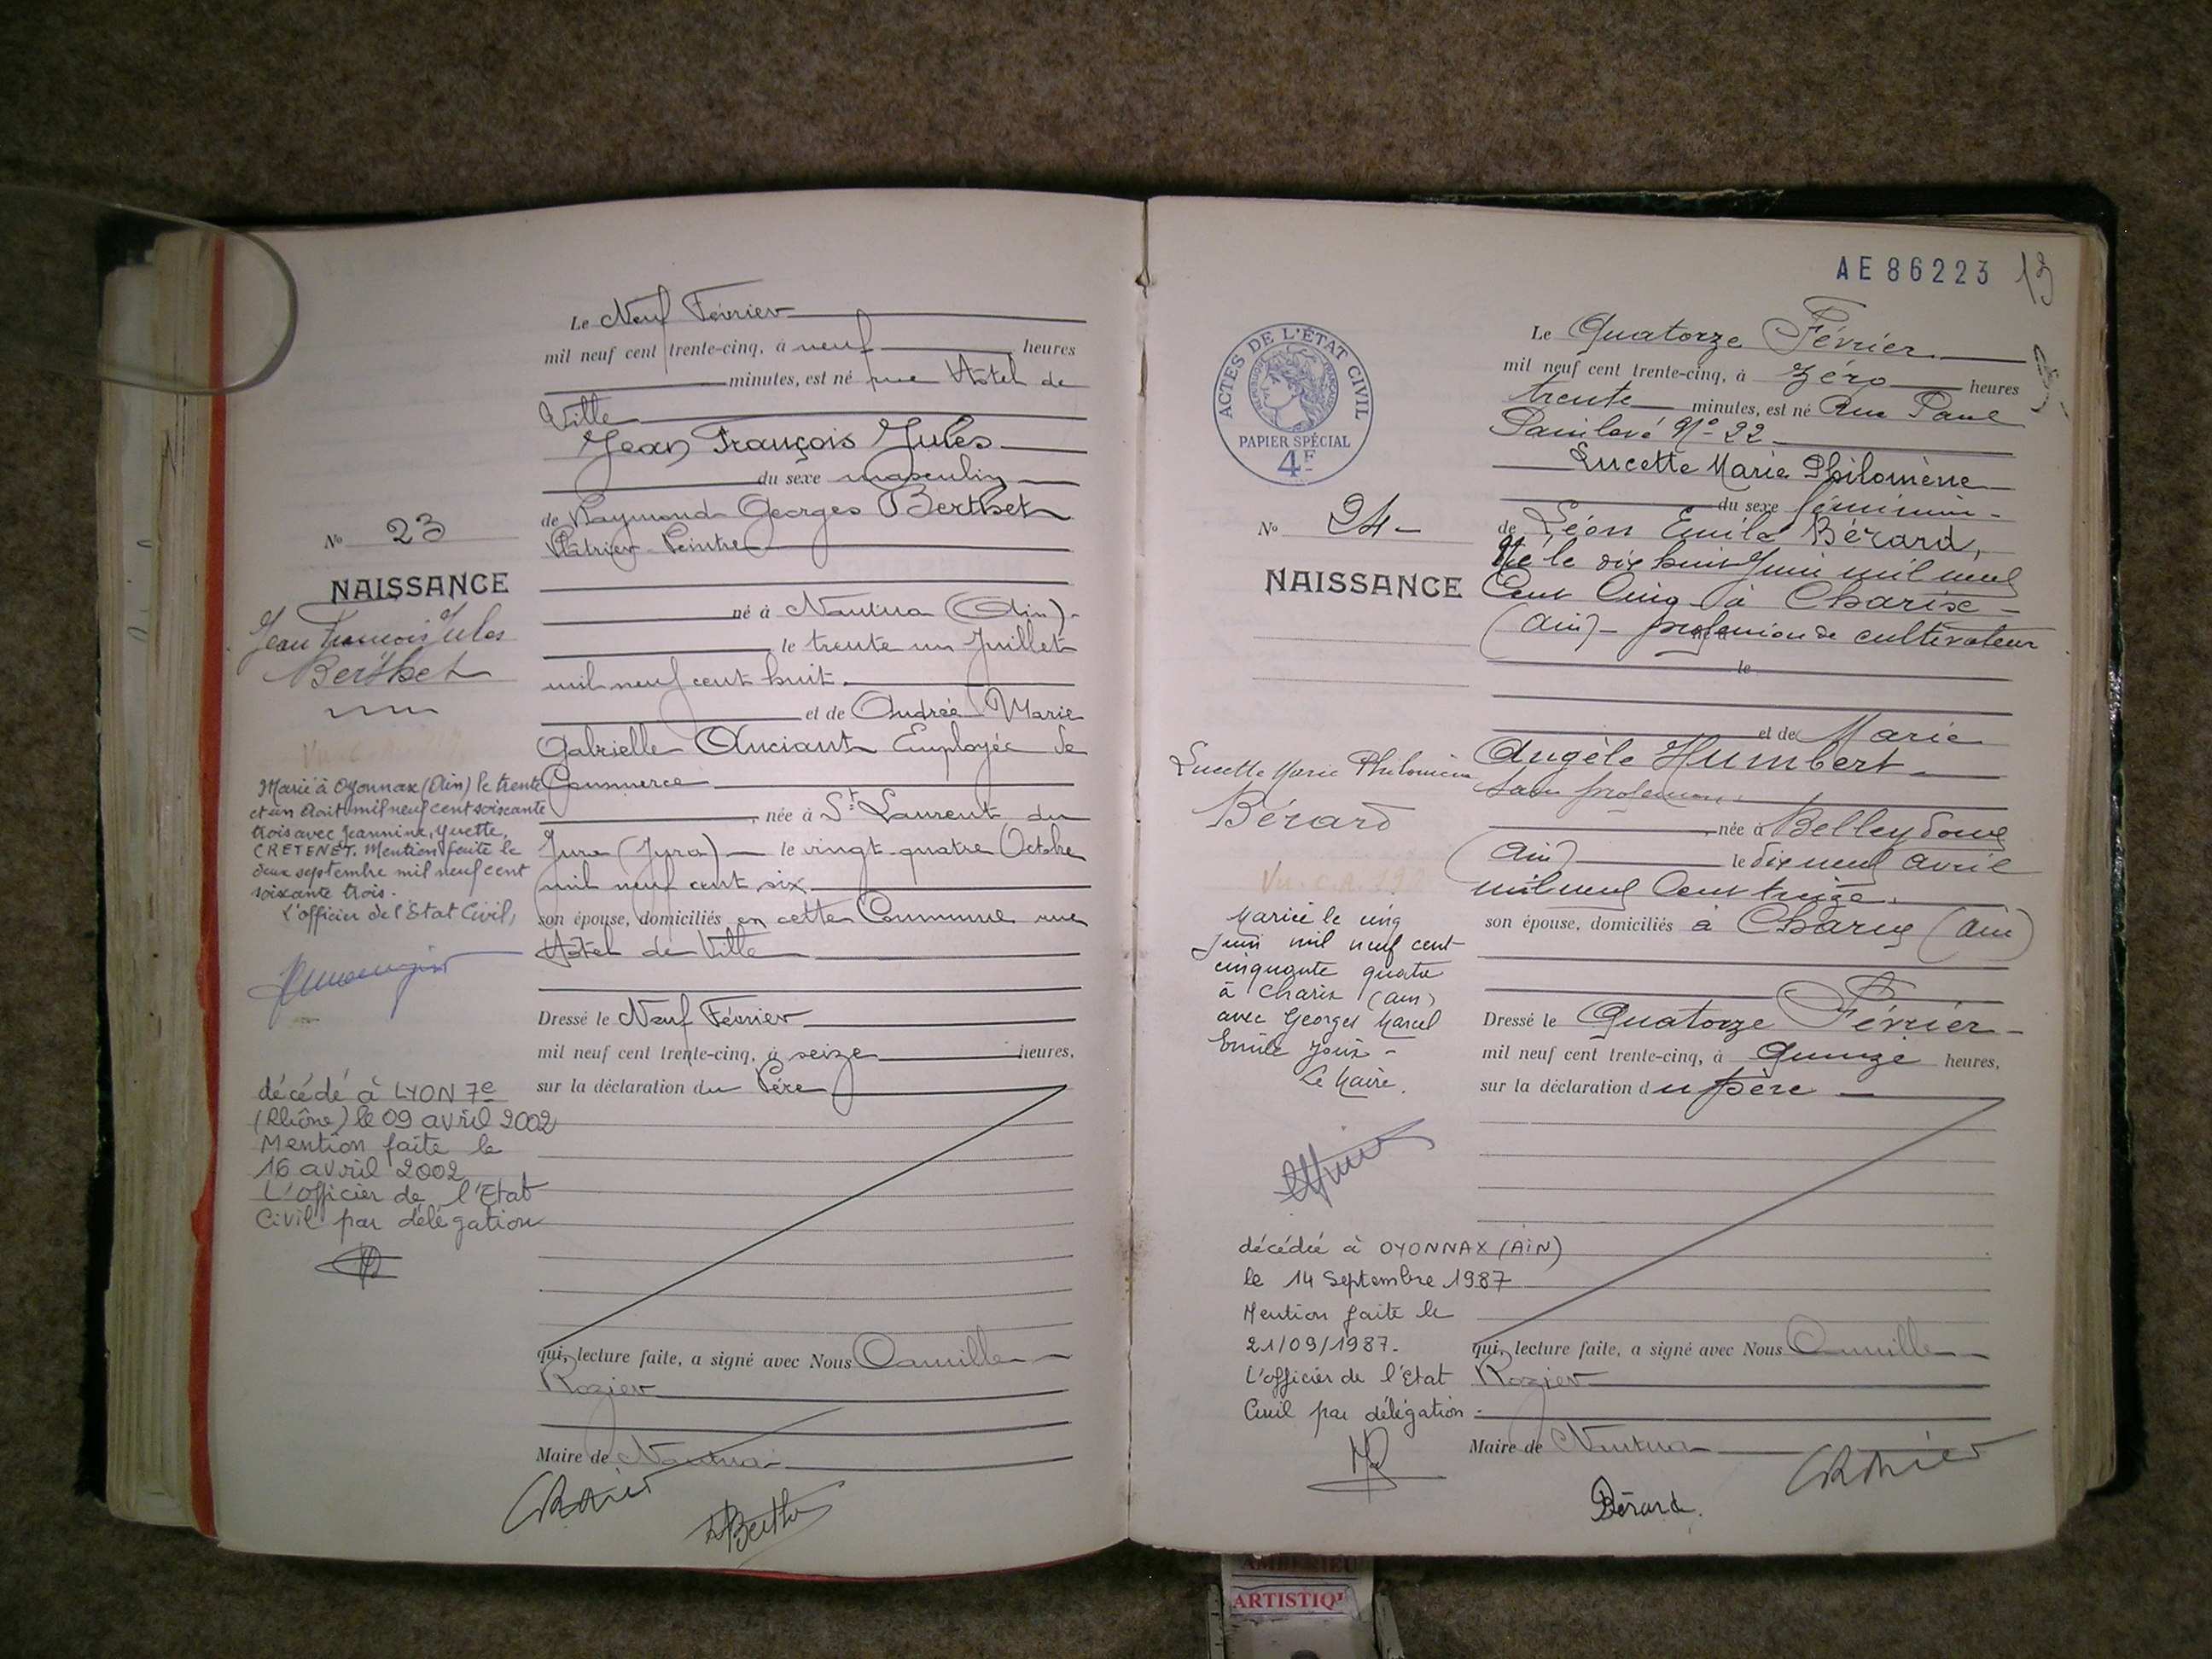 Le Neuf Février
mil neuf cent trente-cinq, à neuf heures
minutes, est né rue Hôtel de
Ville
Jean François Jules
du sexe masculin
de Raymond Georges Berthet
Plâtrier-Peintre
né à Nantua (Ain)-
le trente un Juillet
mil neuf cent huit.
et de Andrée Marie
Gabrielle Anciant Employée de
Commerce
, née à St Laurent du
Jura (Jura) le vingt quatre Octobre
mil neuf cent six
son épouse, domiciliés en cette Commune rue
Hôtel de Ville
Dressé le Neuf Février
mil neuf cent trente-cinq, à seize heures,
sur la déclaration du Père
qui, lecture faite, a signé avec Nous Camille
Rozier
Maire de Nantua
No 23
NAISSANCE
Jean François Jules
Berthet
Marié à Oyonnax (Ain) le trente
et un Août mil neuf cent soixante
trois avec Jeannine, Yvette,
CRETENET. Mention faite le
deux septembre mil neuf cent
soixante trois.
L'officier de l'Etat Civil,
décédé à LYON 7e
(Rhône) le 09 avril 2002
Mention faite le
16 avril 2002
L'officier de l'Etat
Civil par délégation
AE 86223 13
ACTES DE L'ÉTAT CIVIL
PAPIER SPÉCIAL
4F
Le Quatorze Février
mil neuf cent trente-cinq, à zéro heures
trente minutes, est né Rue Paul
Painlevé No 22
Lucette Marie Philomène
du sexe féminin -
de Léon Emile Bérard,
Né le dix huit Juin mil neuf
Cent Cinq à Charix -
(Ain) - profession de cultivateur
le
et de Marie
Angèle Humbert
Sans profession
née à Belleydoux
(Ain) le dix neuf avril
mil neuf Cent treize.
son épouse, domiciliés à Charix (Ain)
Dressé le Quatorze Février -
mil neuf cent trente-cinq, à Quinze heures,
sur la déclaration du père
qui, lecture faite, a signé avec Nous Camille
Rozier
Maire de Nantua
Bérard.
No 24-
NAISSANCE
Lucette Marie Philomène
Bérard
Vu. C.A. 19
Mariée le cinq
Juin mil neuf cent
cinquante quatre
à Charix (Ain)
avec Georges Marcel
Emile
Le Maire.
décédée à OYONNAX (AIN)
le 14 Septembre 1987
Mention faite le
21/09/1987.
L'officier de l'Etat
Civil par délégation
ARTISTIQ